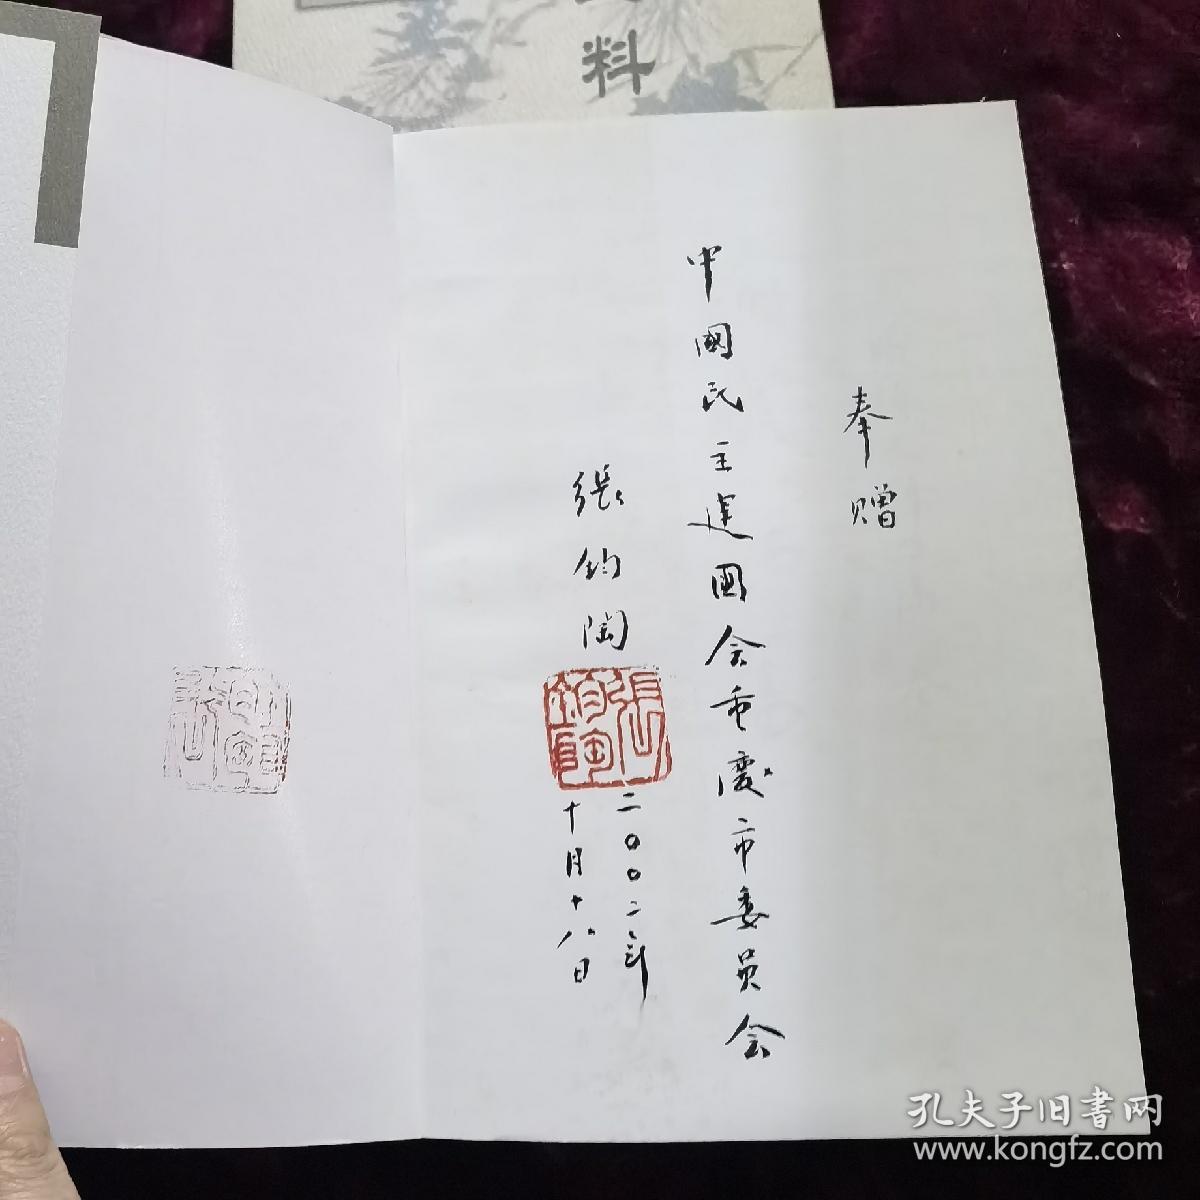 料
奉赠
中國民主建國会重慶市委員会
張鈞陶
張鈞陶
二〇〇二年
十月十八日
孔夫子旧書网
www.kongfz.com